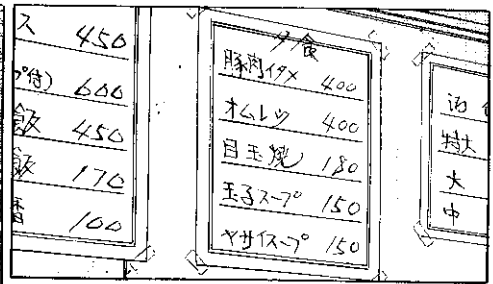 ス 450
プ付) 600
飯 450
飯 170
100
夕食
豚肉イタメ 400
オムレツ 400
目玉焼 180
玉子スープ 150
ヤサイスープ 150
特大
大
中